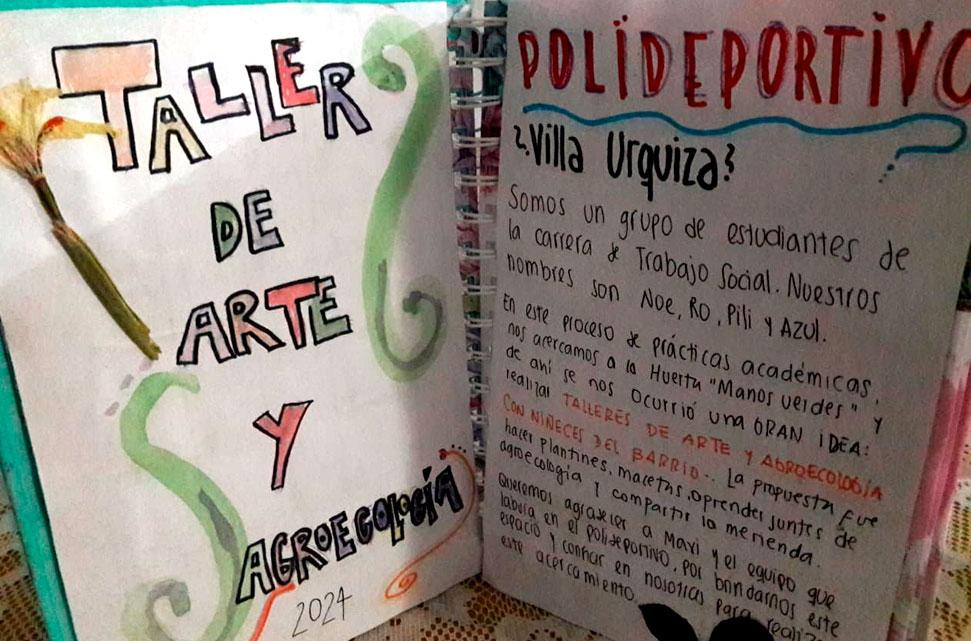 TALLER
DE
ARTE
Y
AGROECOLOGÍA
2024
POLIDEPORTIVO
¿Villa Urquiza?
Somos un grupo de estudiantes de
la carrera de Trabajo Social. Nuestros
nombres son Noe, Ro, Pili y Azul.
En este proceso de prácticas académicas,
nos acercamos a la Huerta "Manos verdes" y
de ahí se nos ocurrió una GRAN IDEA:
realizar TALLERES DE ARTE Y AGROECOLOGÍA
CON NIÑECES DEL BARRIO.. La propuesta fue
hacer plantines, macetas, aprender juntes de
agroecología y compartir la merienda.
Queremos agradecer a Maxi y el equipo que
labura en el polideportivo, por brindarnos este
espacio y confiar en nosotras para
este acercamiento.